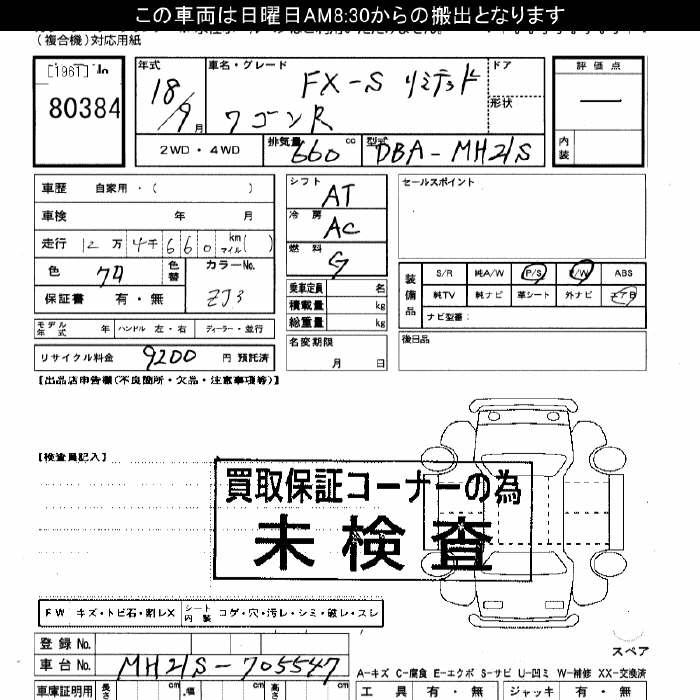 この車両は日曜日AM8:30からの搬出となります
（複合機）対応用紙
[1961]
80384
年式
18/9月
車名・グレード
FX-S リミテッド
ワゴンR
ドア
形状
評価点
―
内装
2WD・4WD
排気量 660 cc
型式 DBA-MH21S
車歴 自家用・（ ）
車検 年 月
走行 12万4千660 km マイル( )
色
色替
カラーNo.
ZJ3
保証書 有・無
シフト
AT
冷房
AC
燃料
G
乗車定員 名
積載量 kg
総重量 kg
セールスポイント
装備品
S/R 純A/W P/S P/W ABS
純TV 純ナビ 革シート 外ナビ エアB
ナビ型番：
モデル年式 年 ハンドル 左・右 ディーラー・並行
名変期限
月 日
後日品
リサイクル料金 9200 円 預託済
【出品店申告欄(不良箇所・欠品・注意事項等)】
【検査員記入】
買取保証コーナーの為
未検査
FW キズ・トビ石・割レX シート内装 コゲ・穴・汚レ・シミ・破レ・スレ
スペア
登録No.
車台No. MH21S-705547
A-キズ C-腐食 E-エクボ S-サビ U-凹ミ W-補修 XX-交換済
車庫証明用 長さ cm 幅 cm 高さ cm
工具 有・無 ジャッキ 有・無